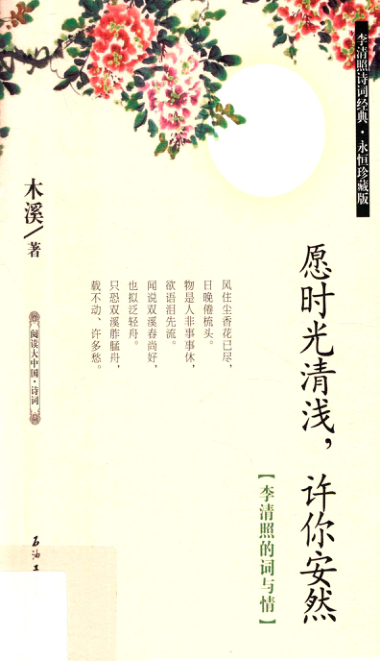 李清照诗词经典·永恒珍藏版
愿时光清浅，许你安然
【李清照的词与情】
风住尘香花已尽，
日晚倦梳头。
物是人非事事休，
欲语泪先流。
闻说双溪春尚好，
也拟泛轻舟。
只恐双溪舴艋舟，
载不动、许多愁。
木溪/著
阅读大中国·诗词
石油工